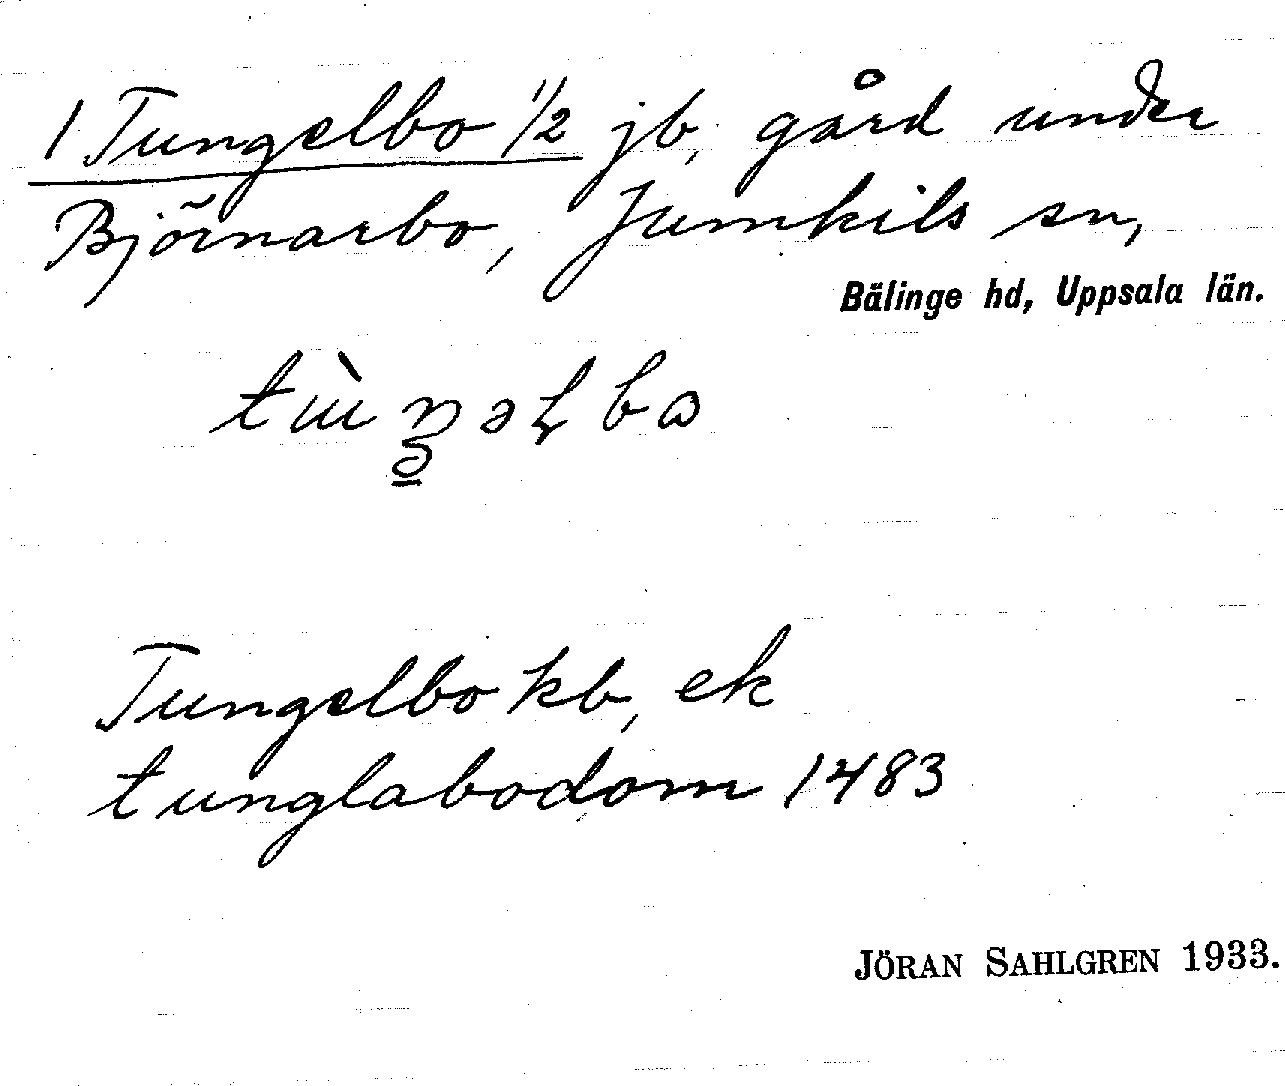 1 Tungelbo 1/2 jb, gård under
Björnarbo, Jumkils sn,
Bälinge hd, Uppsala län.
Tungelbo kb, ek
tunglabodom 1483
JÖRAN SAHLGREN 1933.